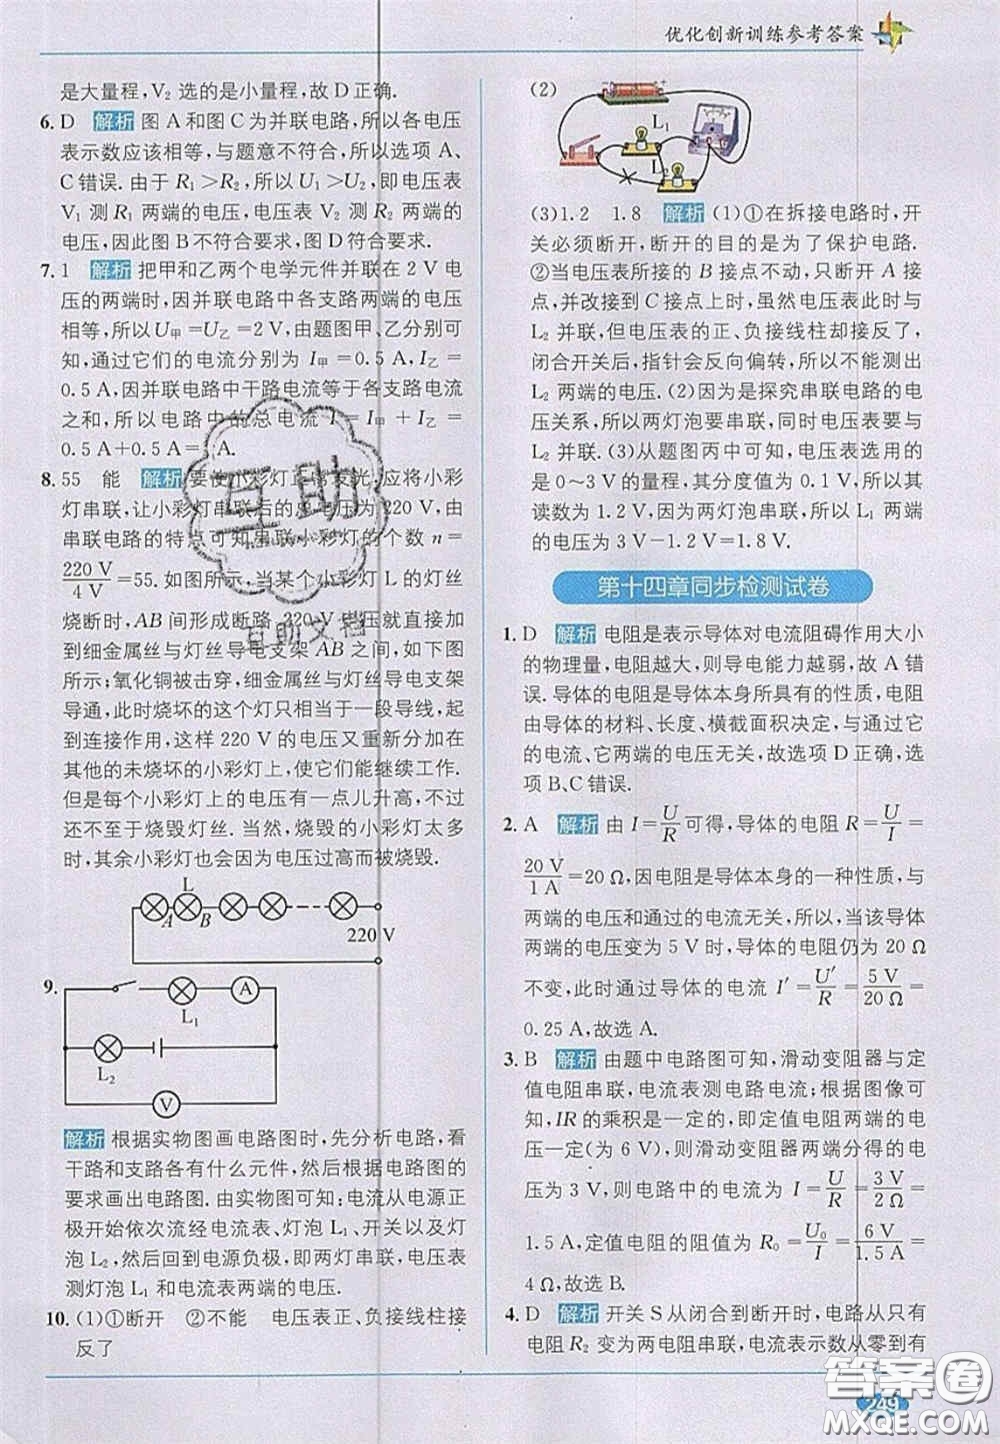 优化创新训练参考答案
是大量程,V₂ 选的是小量程,故 D 正确.
6. D 解析 图 A 和图 C 为并联电路,所以各电压
表示数应该相等,与题意不符合,所以选项 A、
C 错误. 由于 R₁>R₂,所以 U₁>U₂,即电压表
V₁ 测 R₁ 两端的电压,电压表 V₂ 测 R₂ 两端的
电压,因此图 B 不符合要求,图 D 符合要求.
7. 1 解析 把甲和乙两个电学元件并联在 2 V 电
压的两端时,因并联电路中各支路两端的电压
相等,所以 U甲=U乙=2 V,由题图甲、乙分别可
知,通过它们的电流分别为 I甲=0.5 A,I乙=
0.5 A,因并联电路中干路电流等于各支路电流
之和,所以电路中的总电流 I=I甲+I乙=
0.5 A+0.5 A=1 A.
8. 55 能 解析 要使小彩灯正常发光,应将小彩
灯串联、让小彩灯串联后的总电压为 220 V,由
串联电路的特点可知串联小彩灯的个数 n=
220 V/4 V=55. 如图所示,当某个小彩灯 L 的灯丝
烧断时,AB 间形成断路,220 V 的电压就会加
到细金属丝与灯丝导电支架 AB 之间,如下
图所示;氧化铜被击穿,细金属丝与灯丝导电支架
导通,此时烧坏的这个灯只相当于一段导线,
起到连接作用,这样 220 V 的电压又重新分加在
其他的未烧坏的小彩灯上,使它们能继续工作.
但是每个小彩灯上的电压有一点儿升高,不过
还不至于烧毁灯丝. 当然,烧毁的小彩灯太多
时,其余小彩灯也会因为电压过高而被烧毁.
L
A B
220 V
9.
L₁ A
L₂
V
解析 根据实物图画电路图时,先分析电路,看
干路和支路各有什么元件,然后根据电路图的
要求画出电路图. 由实物图可知:电流从电源正
极开始依次流经电流表、灯泡 L₁、开关以及灯
泡 L₂,然后回到电源负极,即两灯串联,电压表
测灯泡 L₁ 和电流表两端的电压.
10. (1)①断开 ②不能 电压表正、负接线柱接
反了
(2)
L₁
L₂
(3)1.2 1.8 解析 (1)①在拆接电路时,开
关必须断开,断开的目的是为了保护电路.
②当电压表所接的 B 接点不动,只断开 A 接
点,并改接到 C 接点上时,虽然电压表此时与
L₂ 并联,但电压表的正、负接线柱却接反了,
闭合开关后,指针会反向偏转,所以不能测出
L₂ 两端的电压. (2)因为是探究串联电路的电
压关系,所以两灯泡要串联,同时电压表要与
L₂ 并联. (3)从题图丙中可知,电压表选用的
是 0~3 V 的量程,其分度值为 0.1 V,所以其
读数为 1.2 V,因为两灯泡串联,所以 L₁ 两端
的电压为 3 V-1.2 V=1.8 V.
第十四章同步检测试卷
1. D 解析 电阻是表示导体对电流阻碍作用大小
的物理量,电阻越大,则导电能力越弱,故 A 错
误. 导体的电阻是导体本身所具有的性质,电阻
由导体的材料、长度、横截面积决定,与通过它
的电流、它两端的电压无关,故选项 D 正确,选
项 B、C 错误.
2. A 解析 由 I=U/R 可得,导体的电阻 R=U/I=
20 V/1 A=20 Ω,因电阻是导体本身的一种性质,与
两端的电压和通过的电流无关,所以,当该导体
两端的电压变为 5 V 时,导体的电阻仍为 20 Ω
不变,此时通过导体的电流 I′=U′/R=5 V/20 Ω=
0.25 A,故选 A.
3. B 解析 由题中电路图可知,滑动变阻器与定
值电阻串联,电流表测电路电流;根据图像可
知,IR 的乘积一定,即定值电阻两端的电
压一定(为 6 V),则滑动变阻器两端分得的电
压为 3 V,则电路中的电流为 I=U/R=3 V/2 Ω=
1.5 A,定值电阻的阻值为 R₀=U₀/I=6 V/1.5 A=
4 Ω,故选 B.
4. D 解析 开关 S 从闭合到断开时,电路从只有
电阻 R₂ 变为两电阻串联,电流表示数从零到有
249
互助
互助文档
答案圈
MXQE.COM